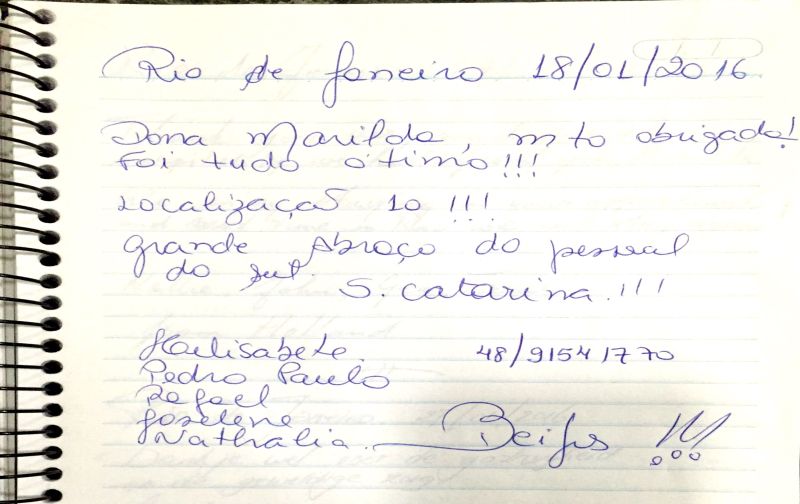 Rio de Janeiro 18/01/2016
Dona Marilda, mto obrigada!
Foi tudo ótimo!!!
Localização 10 !!!
Grande Abraço do pessoal
do sul.
S. Catarina.!!!
Halisabete. 48/91541770
Pedro Paulo
Rafael
Joselene
Nathalia. Beijos !!!